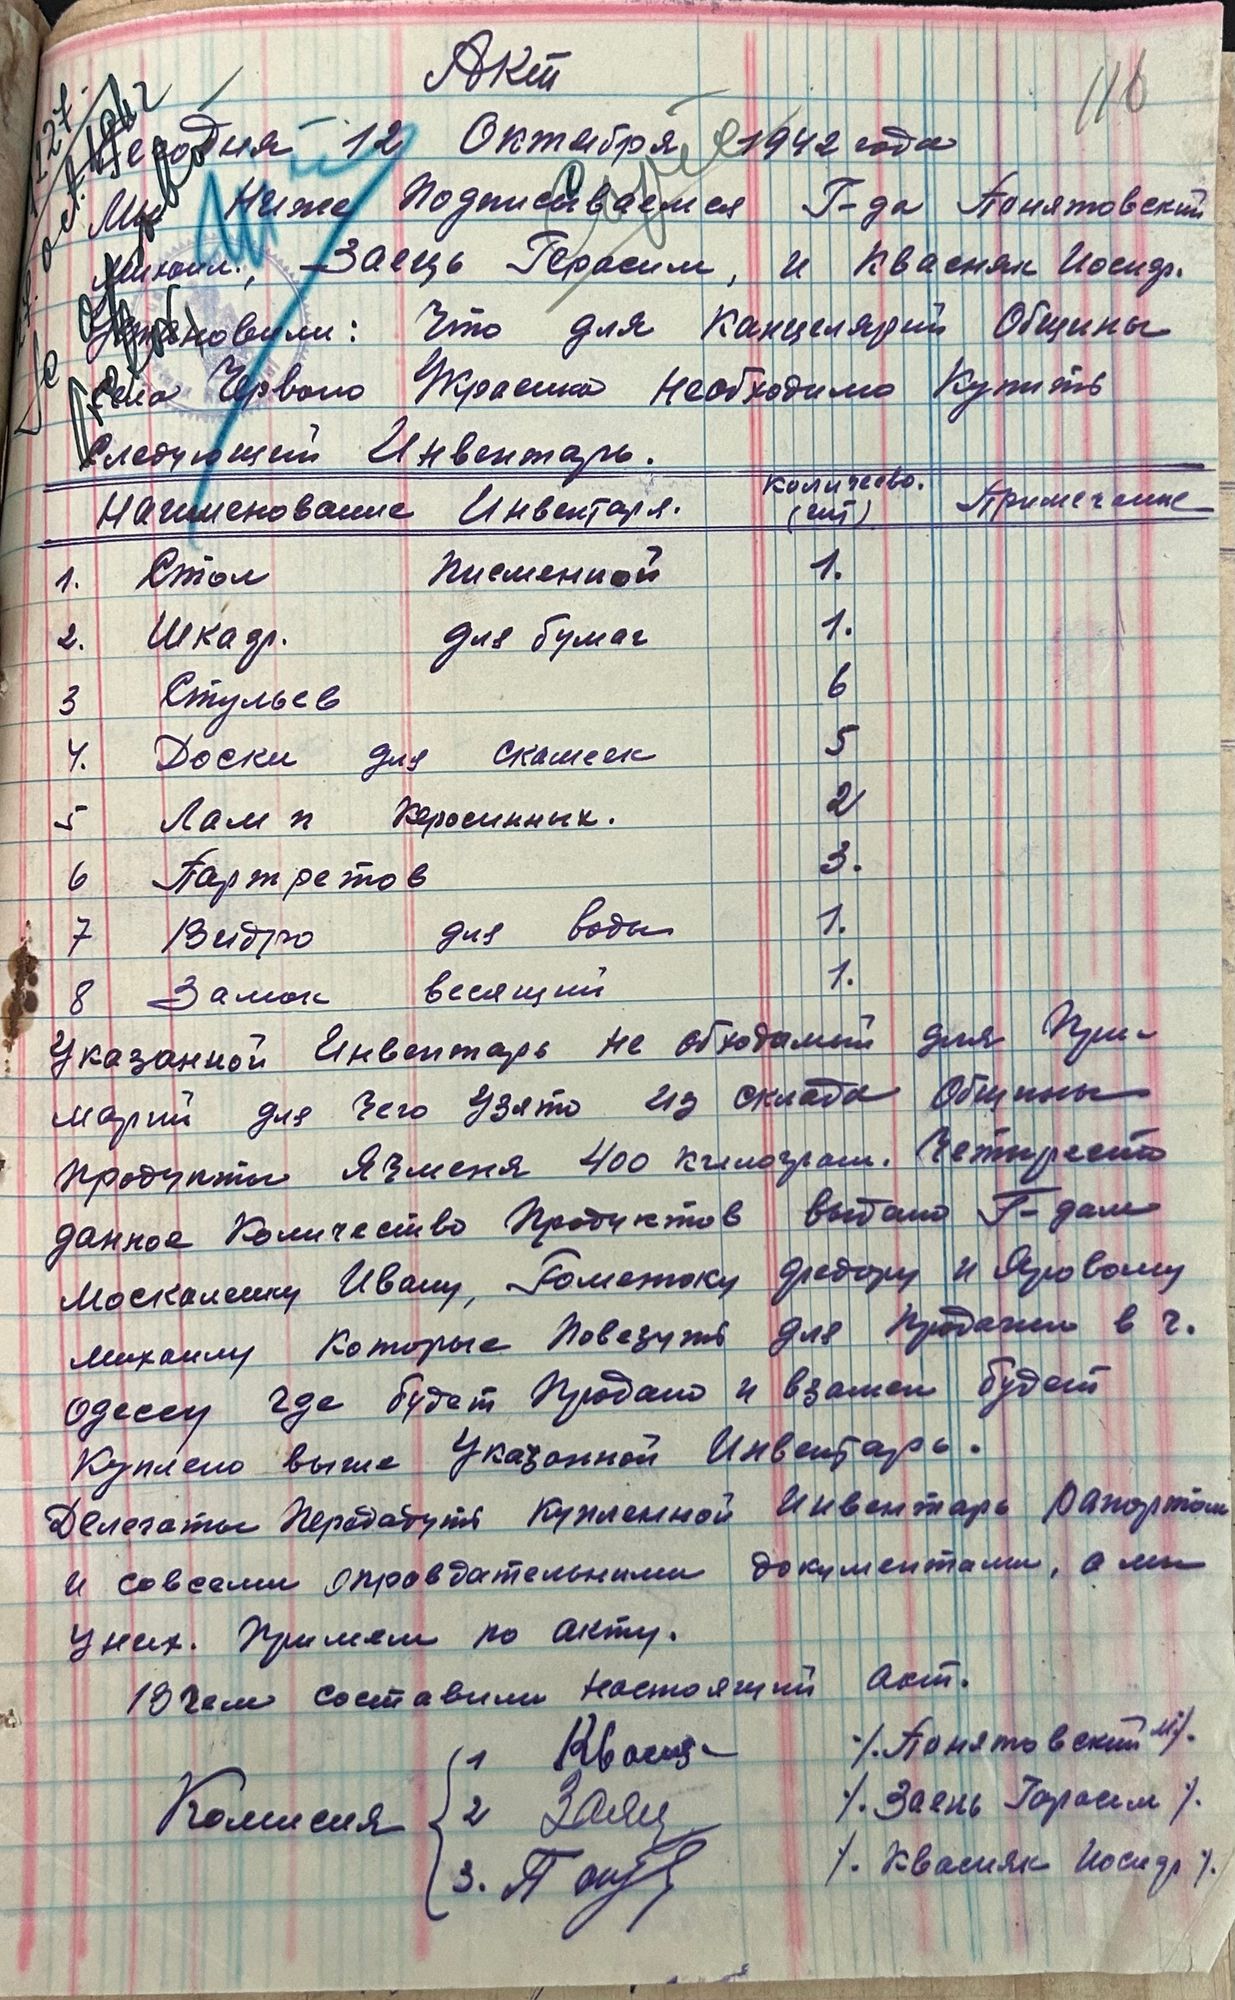 116
Акт
Сегодня 12 Октября 1942 года
Мы Ниже Подписываемся Г-да Понятовский
Михаил, Заець Герасим, и Квасняк Иосиф.
Установили: Что для Канцелярий Общины
села Червоно Украинка необходимо Купить
Следующий Инвентарь.
Наименование Инвентаря. Количесво. (шт) Примечание
1. Стол писменной 1.
2. Шкаф. для бумаг 1.
3 Стульев 6
4. Доски для скамеек 5
5 Ламп Керосинных. 2
6 Партретов 3.
7 Видро для воды 1.
8 Замок весящий 1.
Указанной Инвентарь не обходамый для При-
марий для Чего Узято из склада Общины
продукты Ячменя 400 килограм. Четыресто
данное Количество Продуктов выдано Г-дам
Москаленку Ивану, Гоменюку Федору и Яровому
михаилу Которые Повезуть для продажи в г.
Одессу где будет Продано и взамен будет
Куплено выше Указанной Инвентарь.
Делегаты Передадуть Купленной Инвентарь рапортом
и совсеми оправдательными документами, а мы
у них. Примем по акту.
В чем составили настоящий акт.
Комисия
1 Квасня /. Понятовский М/.
2 Заяц /. Заець Гарасим /.
3. Поня /. Квасняк Иосиф /.